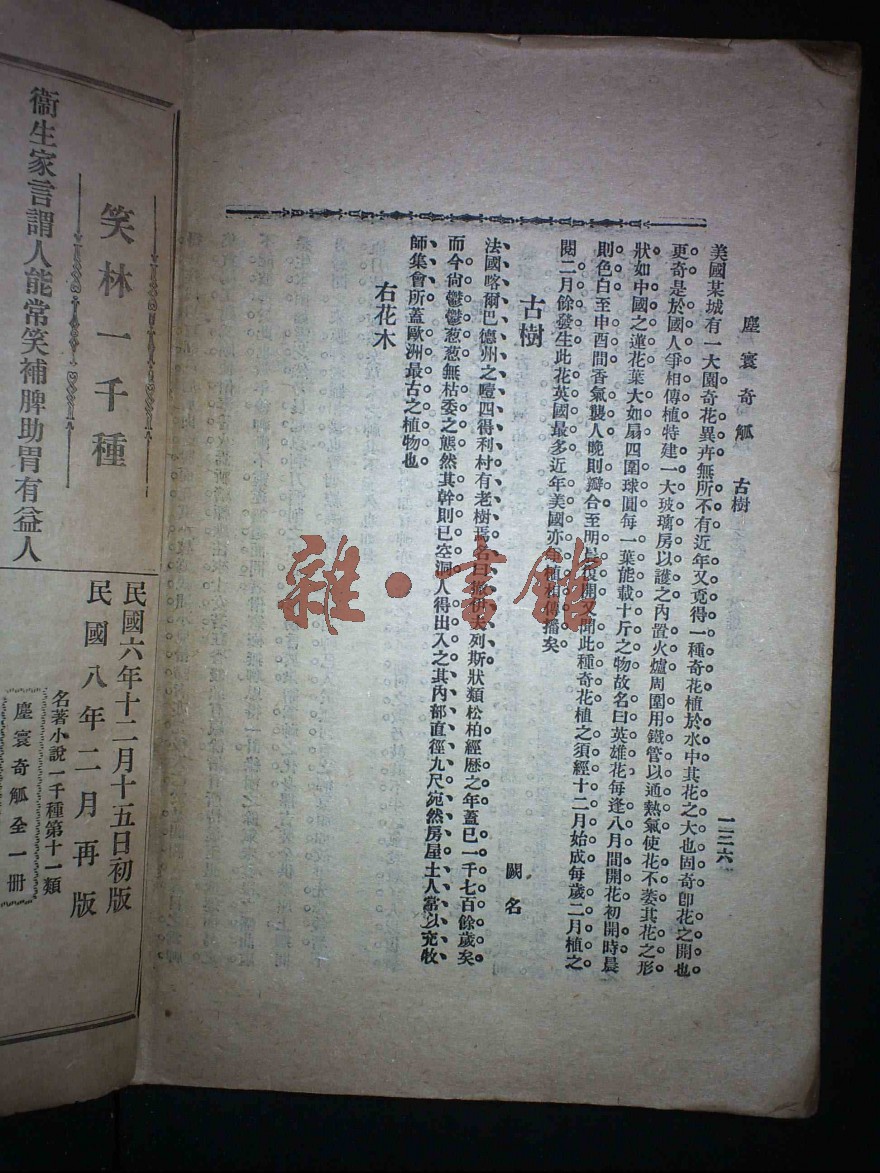 塵寰奇觚　古樹　一三六
美國某城有一大園奇花異卉無所不有近年又覓得一種奇花植於水中其花之大也固奇卽花之開也
更奇是於國人爭相傳植特建一大玻璃房以護之內置火爐周圍用鐵管以通熱氣使花不萎其花之形
狀如中國之蓮花葉大如扇四圍球圓每一葉能載十斤之物故名曰英雄花每逢八月間開花初開時晨
則色白至申酉間香氣襲人晚則瓣合至明晨復開又聞此種奇花植之須經十二月始成每歲二月植之
閱二月餘發生此花英國最多近年美國亦 植 傳播矣
古樹
闕名
法國喀爾巴德州之噎四得利村有老樹焉名曰撒伊夫列斯狀類松柏經歷之年蓋已一千七百餘歲矣
而今尙鬱鬱葱葱無枯委之態然其幹則已空洞人得出入之其內部直徑九尺宛然房屋土人常以充牧
師集會所蓋歐洲最古之植物也
右花木
笑林一千種
衞生家言謂人能常笑補脾助胃有益人
民國六年十二月十五日初版
民國八年二月再版
名著小說一千種第十一類
塵寰奇觚全一冊
雜·書館